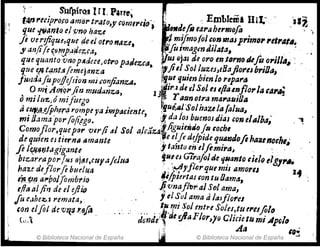 Suspiros III. Parte,
tan reciproco amor trato, y comercio,
que quanto el vno haze
se verifique, que de el otro naze,
y ansi se compadezca,
que quanto vno padece, otro padezca,
que en tanta semejanza
funda su possession mi confianza.
O mi Amor sin mudanza,
ô mi luz, ô mi fuego
à cuya esphera rompe ya impaciente,
mi llama por sosiego.
Como flor, que por ver si al Sol alcanza
de quien es tierna amante
se levanta gigante
bizarra por sus ojas, cuya felua
haze de flor se buelua
en vn arbol sombrio
esta al fin de el estio
su cabeza remata,
con el sol de vna rosa
donde
Emblema III.
187
donde su cara hermosa
el mismo sol con mas primor retrata.
su imagen dilata,
sus ojas de oro en torno de su orilla,
si el Sol luzes, ella flores brilla,
que quien bien lo repara
dira de el Sol es esta en flor la cara:
Y aun otra marauilla
qual Sol haze la salua,
da los buenos dias con el alba,
siguiendo su coche
de el se despide quando se haze noche,
y tanto en el se mira,
que es Girasol de quanto cielo el gyra.
Ay flor que mis amores
despiertas con tu llama,
si vna flor al Sol ama,
y el Sol ama à las flores
tu mi Sol entre Soles, tu eres solo
de esta Flor, yo Clicie tu mi Apolo
Aa